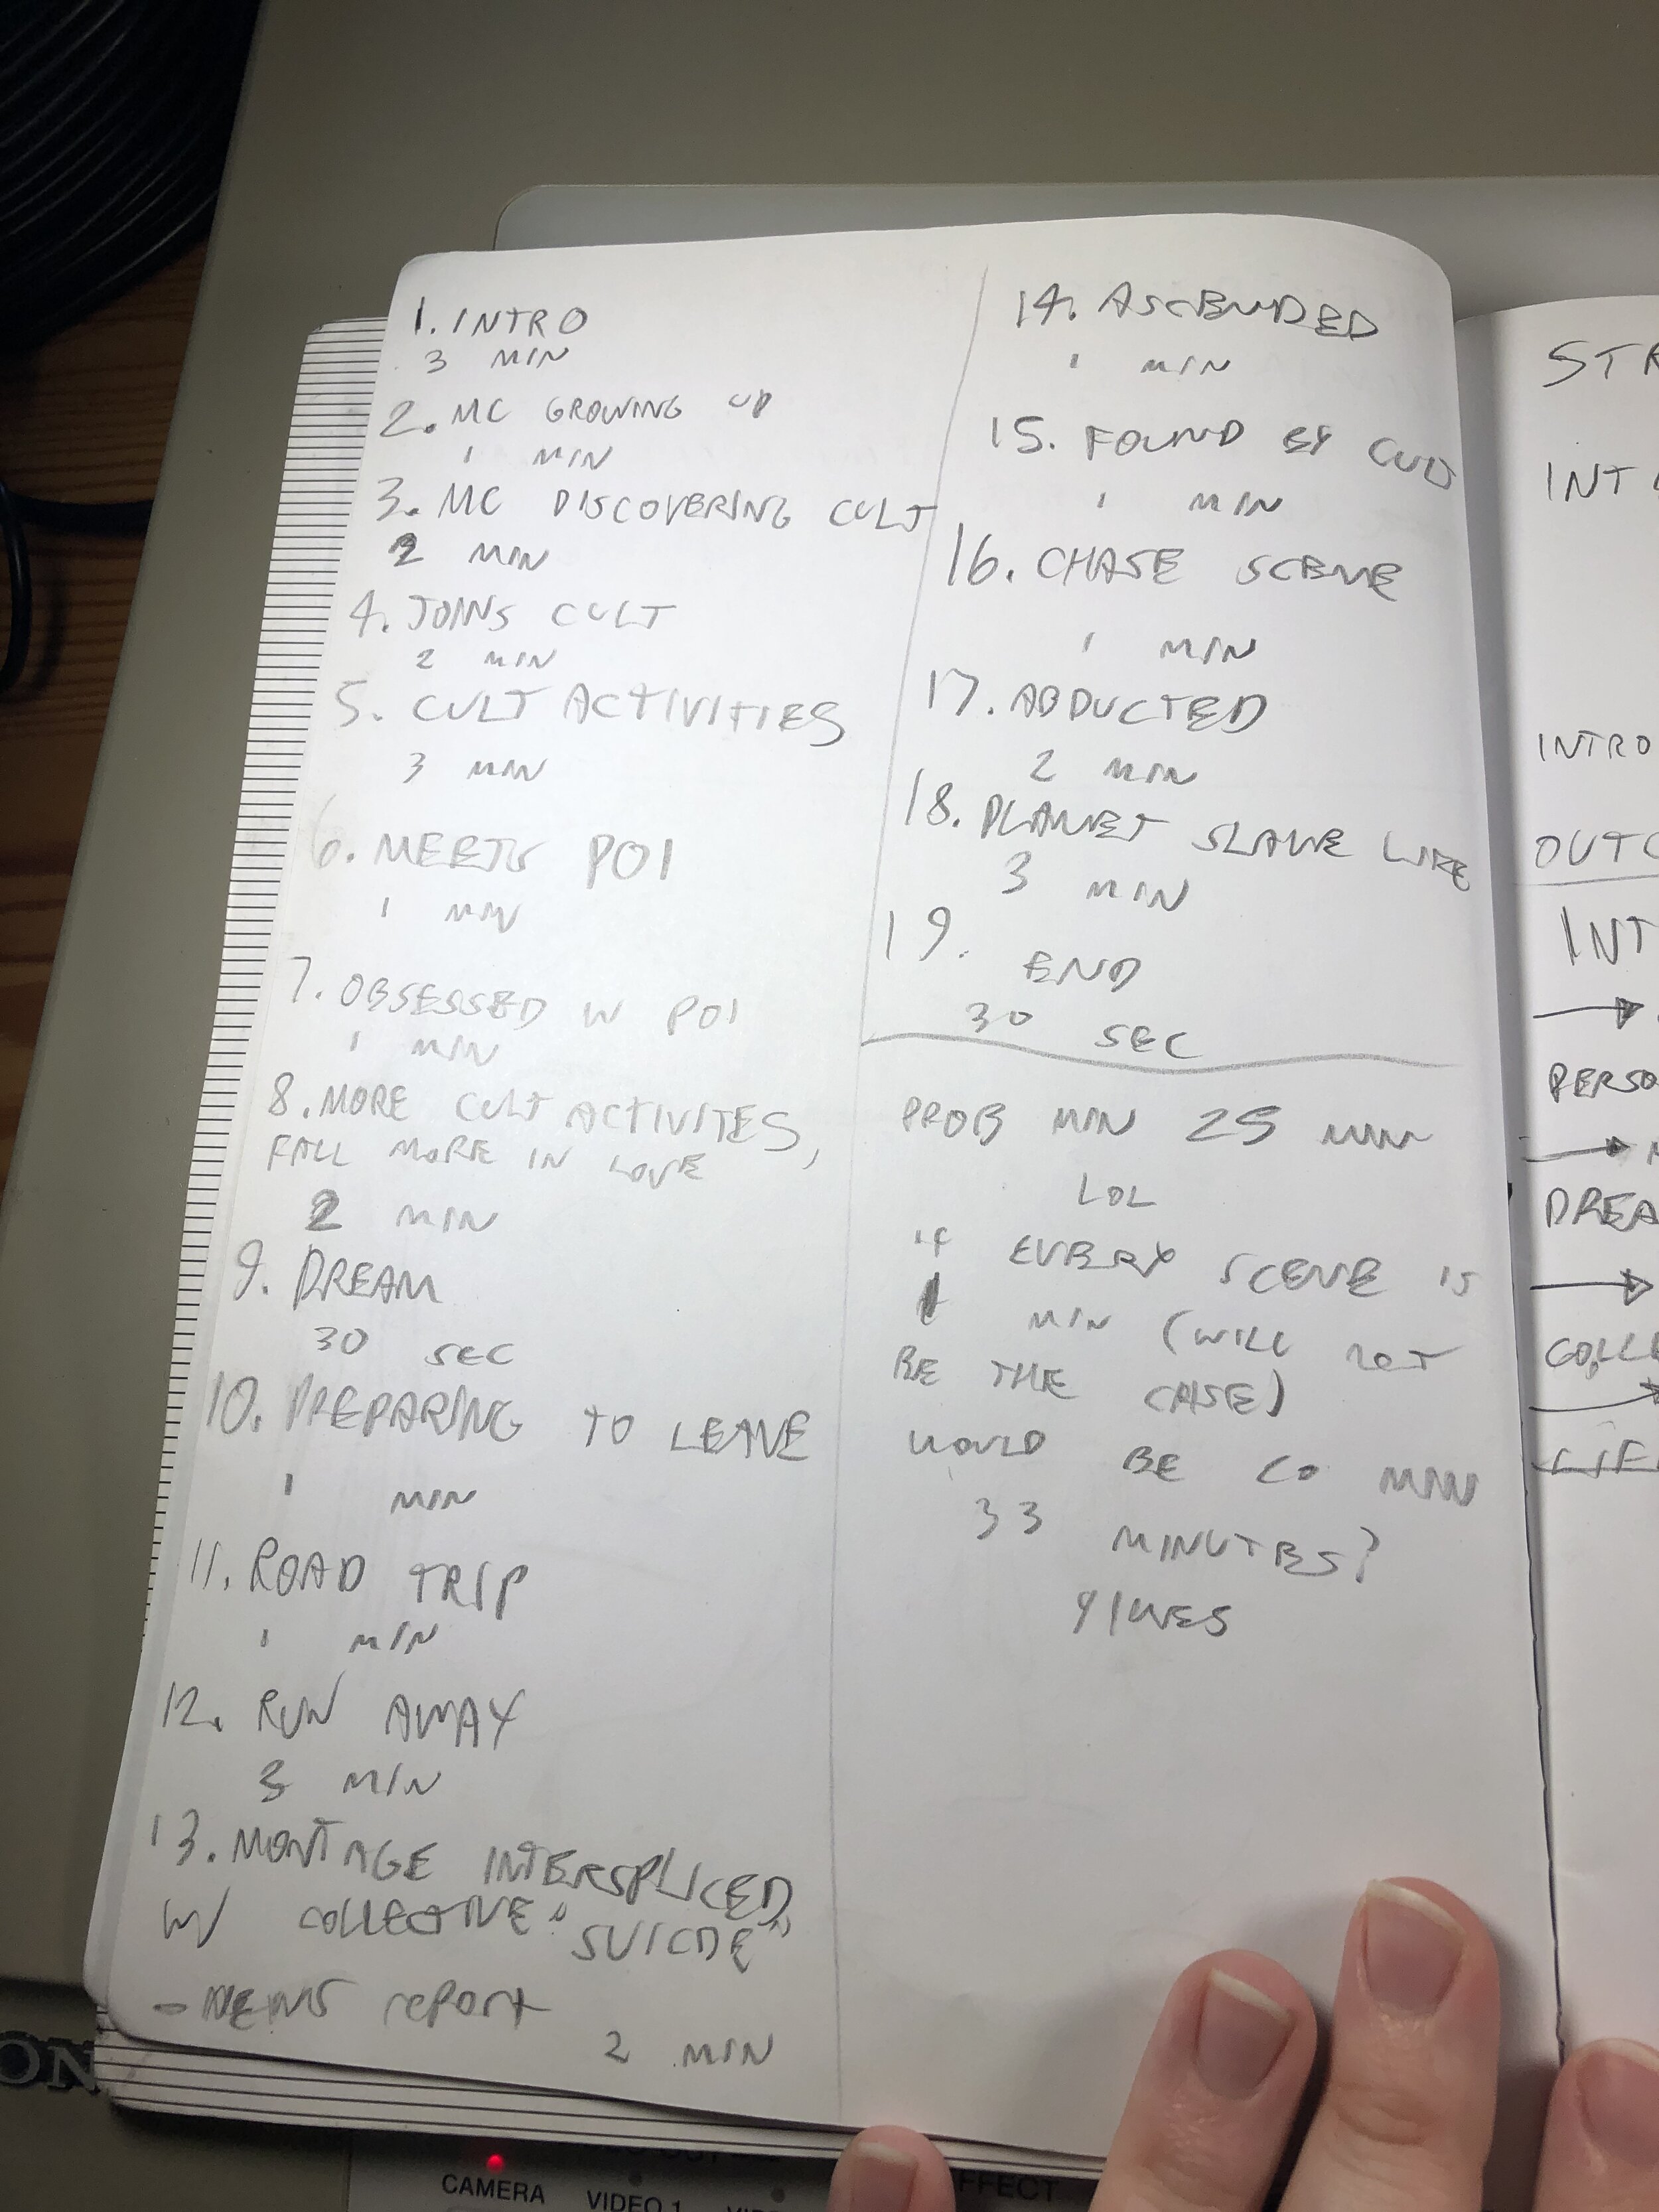 1. INTRO
3 MIN
2. MC GROWING UP
1 MIN
3. MC DISCOVERING CULT
2 MIN
4. JOINS CULT
2 MIN
5. CULT ACTIVITIES
3 MIN
6. MEETS POI
1 MIN
7. OBSESSED W POI
1 MIN
8. MORE CULT ACTIVITES,
FALL MORE IN LOVE
2 MIN
9. DREAM
30 SEC
10. PREPARING TO LEAVE
1 MIN
11. ROAD TRIP
1 MIN
12. RUN AWAY
3 MIN
13. MONTAGE INTERSPLICED
W/ COLLECTIVE "SUICDE"
- NEWS report
2 MIN
14. ASCENDED
1 MIN
15. FOUND BY CULT
1 MIN
16. CHASE SCENE
1 MIN
17. ABDUCTED
2 MIN
18. PLANET SLAVE LIFE
3 MIN
19.
END
30 SEC
PROB MIN 25 MIN
LOL
if EVERY SCENE IS
1 MIN (WILL NOT
BE THE CASE)
WOULD BE MIN
33 MINUTES?
YIKES
STR
INT
INTRO
OUTC
INT
PERSO
DREA
COLLE
LIF
ON
CAMERA
VIDEO 1
FFECT